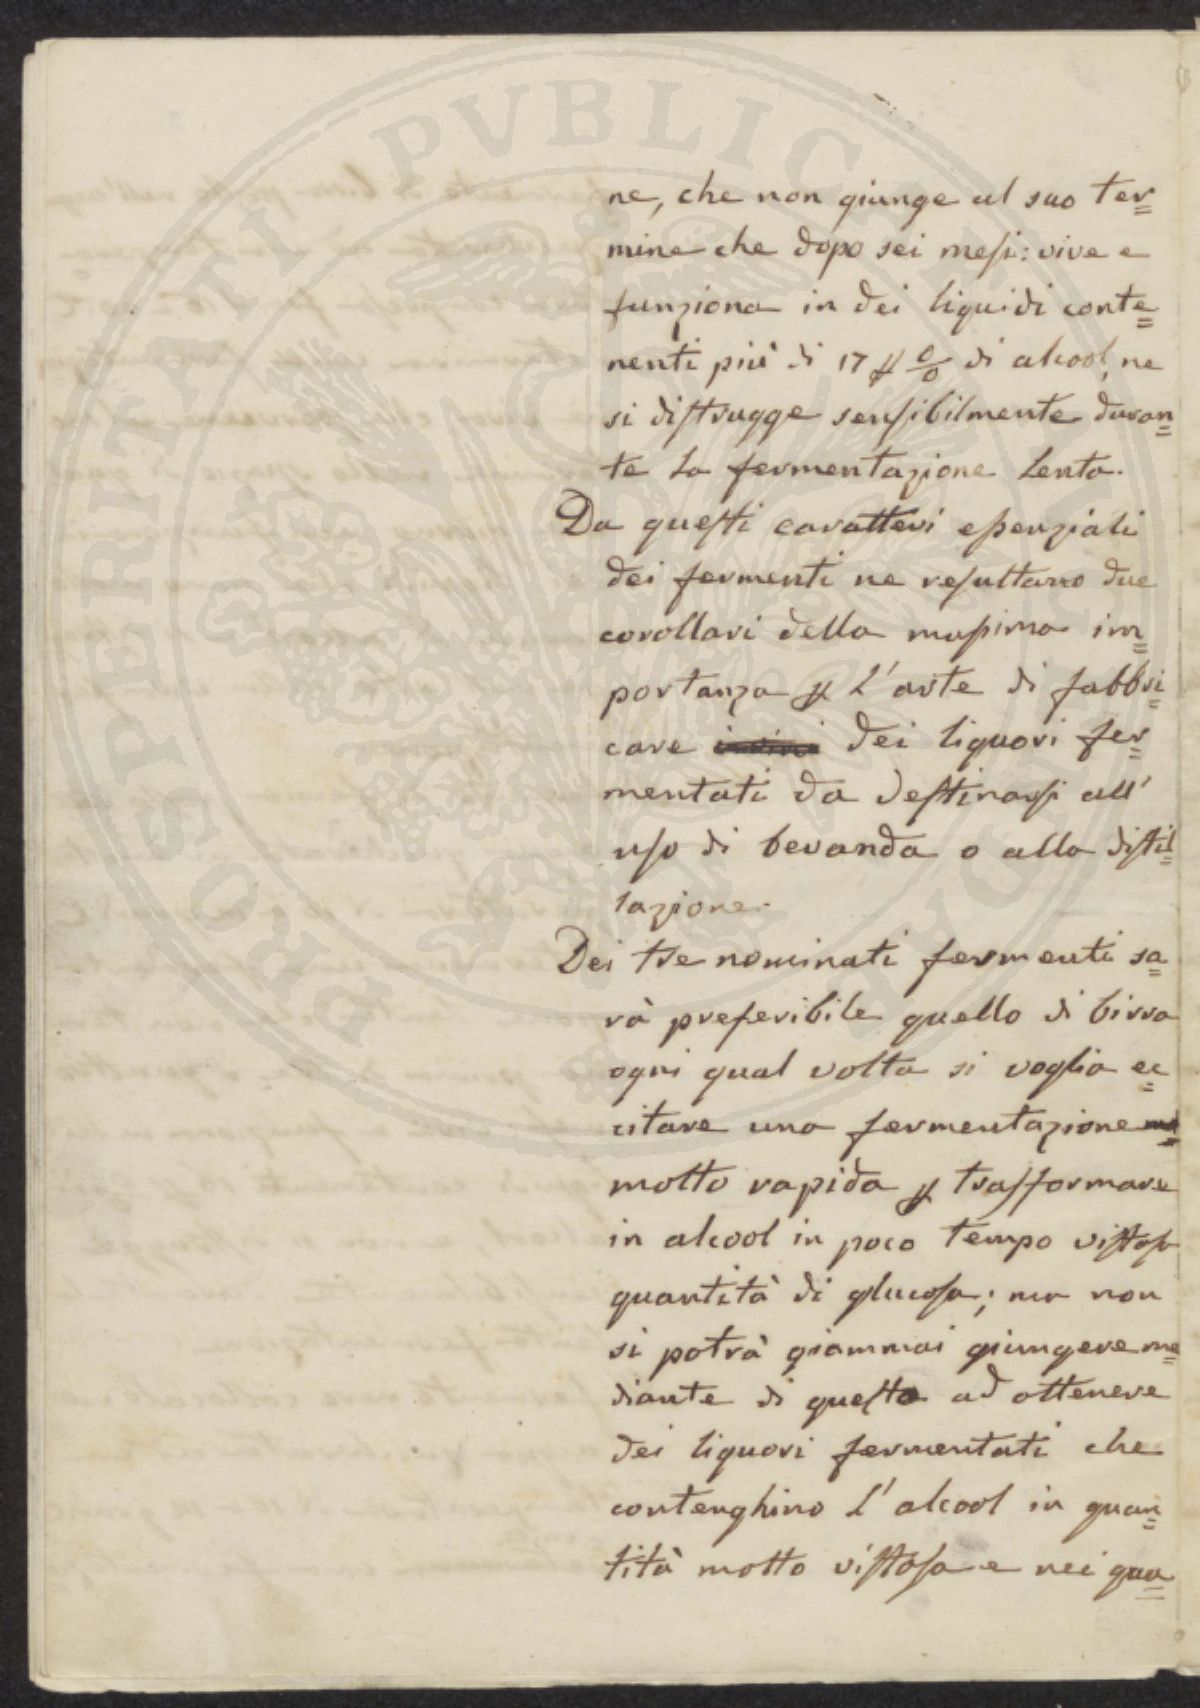 PROSPERITATI PVBLICAE
ne, che non giunge al suo ter=
mine che dopo sei mesi: vive e
funziona in dei liquidi conte=
nenti più di 17 p 0/0 di alcool, ne
si distrugge sensibilmente duran=
te la fermentazione lenta.
Da questi caratteri essenziali
dei fermenti ne resultano due
corollari della massima im=
portanza p l'arte di fabbri=
care dei liquori fer=
mentati da destinarsi all'
uso di bevanda o alla distil=
lazione.
Dei tre nominati fermenti sa=
rà preferibile quello di birra
ogni qual volta si voglia ec=
citare una fermentazione
molto rapida p trasformare
in alcool in poco tempo vistosa
quantità di glucosa; ma non
si potrà giammai giungere me=
diante di questo ad ottenere
dei liquori fermentati che
contenghino l'alcool in quan=
tità molto vistosa e nei qua=